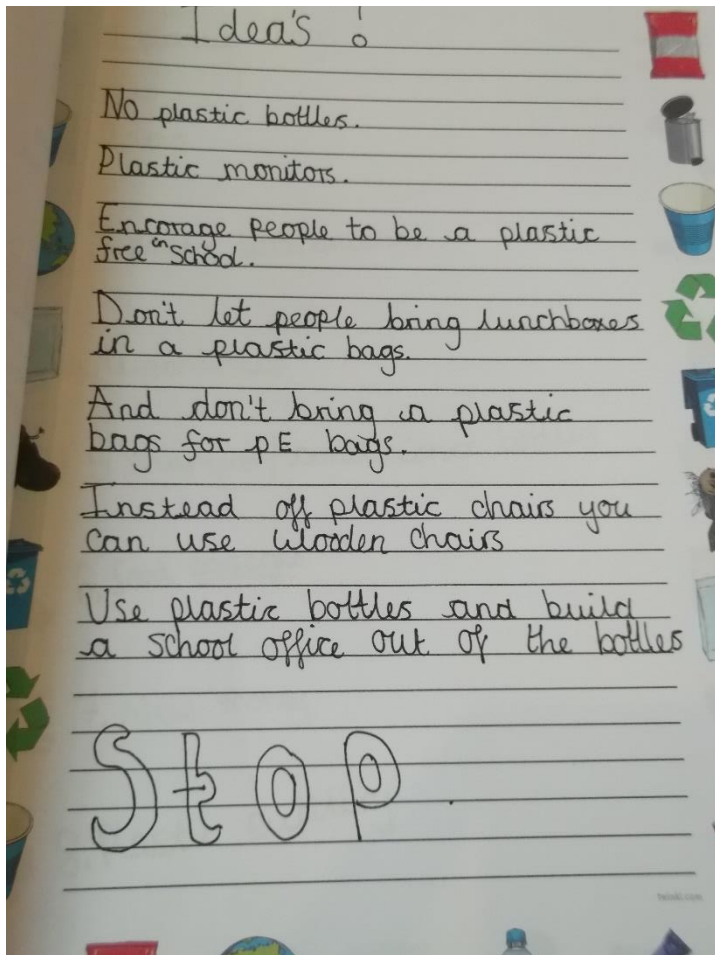 Idea's !
No plastic bottles.
Plastic monitors.
Encorage people to be a plastic
free en school.
Don't let people bring lunchboxes
in a plastic bags.
And don't bring a plastic
bags for PE bags.
Instead off plastic chairs you
can use wooden chairs
Use plastic bottles and build
a school office out of the bottles
Stop.
twinkl.com